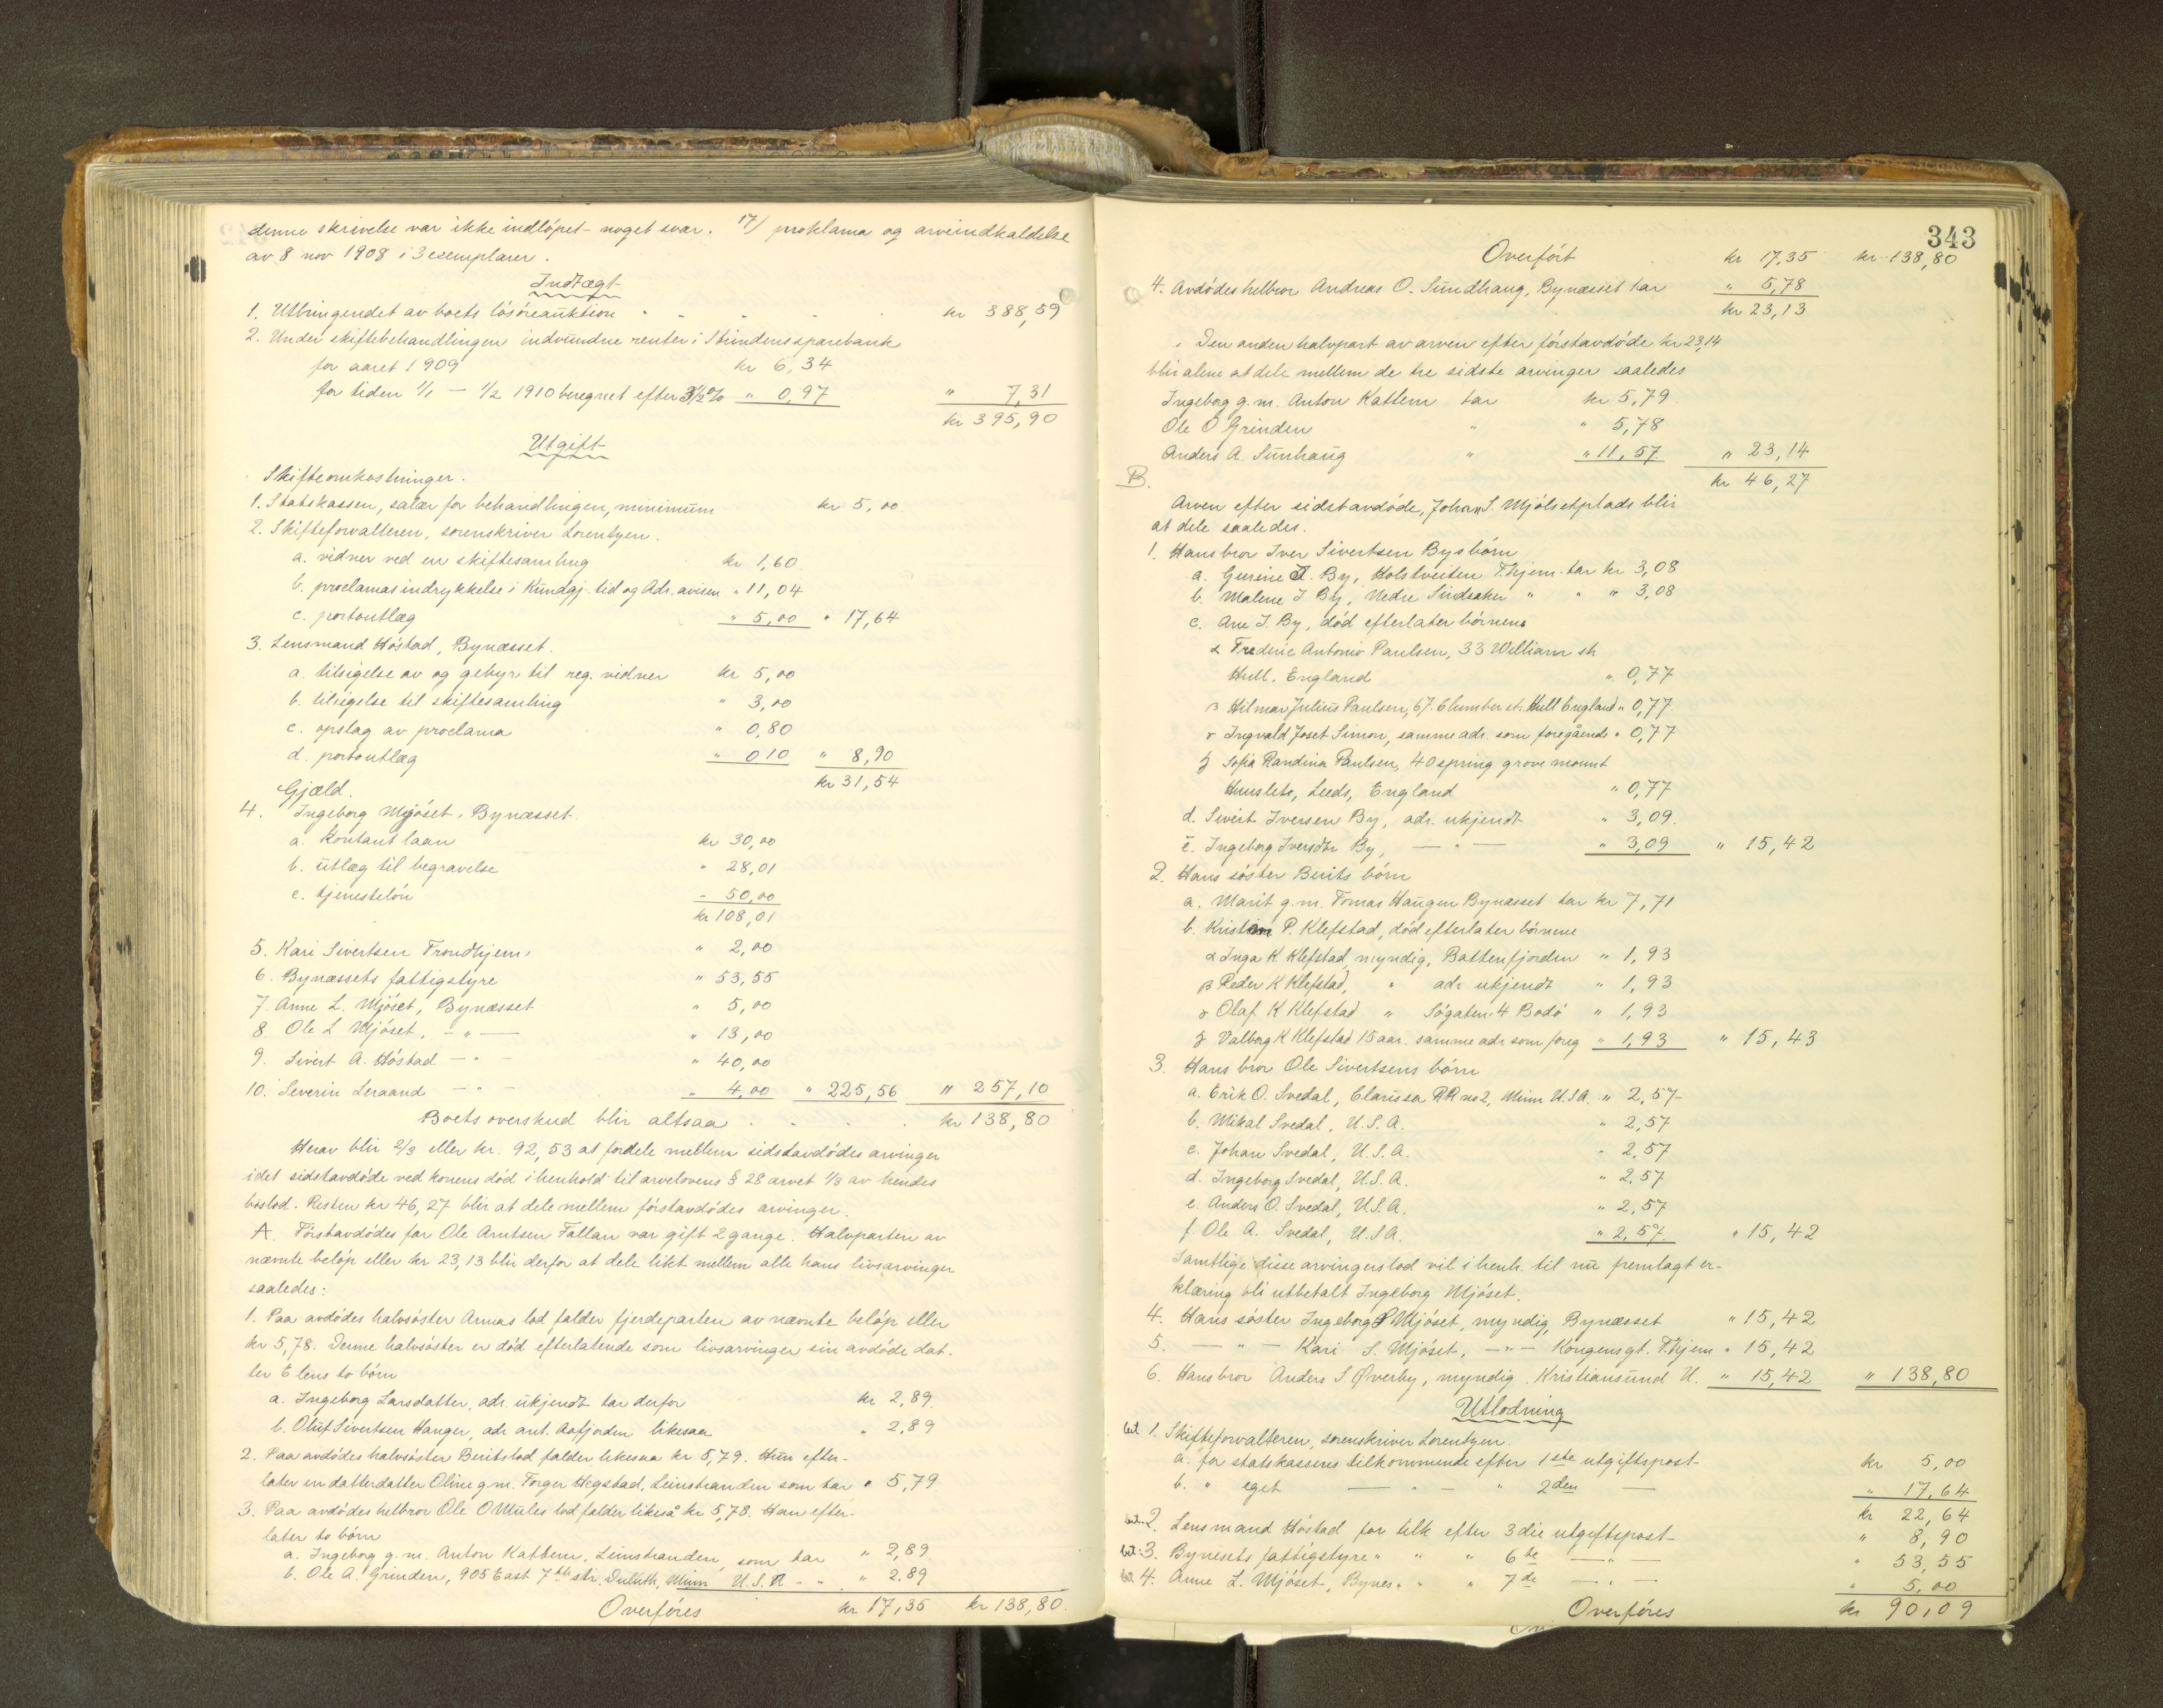 denne skrivelse var ikke indløpet noget svar. 17/ proklama og arveindkaldelse
av 8 nov 1908 i 3 exemplarer.
Indtægt
1. Utbringendet av boets løsøreauktion " " . . kr 388,59
2. Under skiftebehandlingen indvundne renter i Strindens sparebank
for aaret 1909 kr 6,34
for tiden 1/1 — 1/2 1910 beregnet efter 3 1/2 % " 0,97 " 7,31
kr 395,90
Utgift
Skifteomkostninger.
1. Statskassen, salær for behandlingen, minimum kr 5,00
2. Skifteforvalteren, sorenskriver Lorentzen.
a. vidner ved en skiftesamling kr 1,60
b. proclamas indrykkelse i Kundgj. tid og Adr. avisen " 11,04
c. portoutlæg " 5,00 " 17,64
3. Lensmand Høstad, Bynæsset.
a. tilsigelse av og gebyr til reg. vidner kr 5,00
b. tilsigelse til skiftesamling " 3,00
c. opslag av proclama " 0,80
d. portoutlæg " 0,10 " 8,90
kr 31,54
Gjæld.
4. Ingeborg Mjøset, Bynæsset.
a. kontant laan kr 30,00
b. utlæg til begravelse " 28,01
c. tjenesteløn " 50,00
kr 108,01
5. Kari Sivertsen Trondhjem, " 2,00
6. Bynæssets fattigstyre " 53,55
7. Anne L. Mjøset, Bynæsset " 5,00
8. Ole L Mjøset, — " — " 13,00
9. Sivert A. Høstad — " — " 40,00
10. Severin Leraand — " — " 4,00 " 225,56 " 257,10
Boets overskud blir altsaa . . . . kr 138,80
Herav blir 2/3 eller kr. 92,53 at fordele mellem sidstavdødes arvinger
idet sidstavdøde ved konens død i henhold til arvelovens § 28 arvet 1/3 av hendes
boslod. Resten kr 46,27 blir at dele mellem førstavdødes arvinger.
A. Førstavdødes far Ole Arntsen Fallan var gift 2 gange. Halvparten av
nævnte beløp eller kr 23,13 blir derfor at dele likt mellem alle hans livsarvinger
saaledes:
1. Paa avdødes halvsøster Arnas lod falder fjerdeparten av nævnte beløp eller
kr 5,78. Denne halvsøster er død efterlatende som livsarvinger sin avdøde dat-
ter Elens to børn
a. Ingeborg Larsdatter, adr. ukjendt tar derfor kr 2,89.
b. Oluf Sivertsen Hanger, adr ant. Aafjorden likesaa " 2,89
2. Paa avdødes halvsøster Beritslod falder likesaa kr 5,79. Hun efter-
later en datterdatter Oline g.m. Torger Hegstad, Leinstranden som tar " 5,79
3. Paa avdødes helbror Ole O Mules lod falder likeså kr 5,78. Han efter-
later to børn
a. Ingeborg g.m. Anton Kattem, Leinstranden, som tar " 2,89.
b. Ole A. Grinden, 905 East 7th str. Duluth, Minn U.S.A - " " 2.89
Overføres kr 17,35 kr 138,80.
343
Overført kr 17,35 kr 138,80
4. Avdødes helbror Andreas O. Sundhaug, Bynæsset tar " 5,78
kr 23,13
Den anden halvpart av arven efter førstavdøde kr 23,14
blir alene at dele mellem de tre sidste arvinger saaledes
Ingeborg g.m. Anton Kattem tar kr 5,79.
Ole O Grinden " " 5,78
Anders A. Sunhaug " " 11,57. " 23,14
kr 46,27
B.
Arven efter sidstavdøde, Johan S. Mjølsetplads blir
at dele saaledes.
1. Hans bror Iver Sivertsen Bys børn
a. Gurine I. By, Holstveiten T.hjem. tar kr 3,08
b. Malene I By, Nedre Sindsaker " " " 3,08
c. Ane I. By, død efterlater børnene
α Frederic Antonio Paulsen, 33 William str
Hull. England " 0,77
β Hilmar Julius Paulsen, 67. Clumber str. Hull England " 0,77.
γ Ingvald Joset Simon, samme adr. som foregående " 0,77
δ Sofia Randina Paulsen, 40 spring grove mount
Hunslets, Leeds, England " 0,77
d. Sivert Iversen By, adr. ukjendt " 3,09.
e. Ingeborg Iversdtr By, — " — " 3,09 " 15,42
2. Hans søster Berits børn
a. Marit g.m. Tomas Haugen Bynæsset tar kr 7,71
b. Kristen P. Klefstad, død efterlater børnene
α Inga K. Klefstad, myndig, Battenfjorden " 1,93
β Peder K Klefstad, " adr ukjendt " 1,93
γ Olaf K Klefstad " Søgaten 4 Bodø " 1,93
δ Valborg K Klefstad 15 aar. samme adr som foreg " 1,93 " 15,43
3. Hans bror Ole Sivertsens børn
a. Erik O. Svedal, Clarissa RR no 2, Minn U.S.A. " 2,57
b. Mikal Svedal, U.S.A. " 2,57
c. Johan Svedal, U.S.A. " 2,57
d. Ingeborg Svedal, U.S.A. " 2,57
e. Anders O. Svedal, U.S.A. " 2,57
f. Ole A. Svedal, U.S.A. " 2,57 " 15,42
Samtlige disse arvingers lod vil i henh. til nu fremlagt er-
klæring bli utbetalt Ingeborg Mjøset.
4. Hans søster Ingeborg S Mjøset, myndig, Bynæsset " 15,42
5. — " — Kari S. Mjøset, — " — Kongensgt. T.hjem " 15,42
6. Hans bror Anders S. Øverby, myndig, Kristiansund N. " 15,42 " 138,80
Utlodning
bet 1. Skifteforvalteren, sorenskriver Lorentzen.
a. for statskassens tilkommende efter 1ste utgiftspost kr 5,00
b. " eget — " — " 2den — " 17,64
kr 22,64
bet. 2. Lensmand Høstad for tilk efter 3die utgiftspost " 8,90
bet. 3. Bynesets fattigstyre " " " 6te — " — " 53,55
bet 4. Anne L. Mjøset, Bynes. " " " 7de — " — " 5,00
Overføres kr 90,09